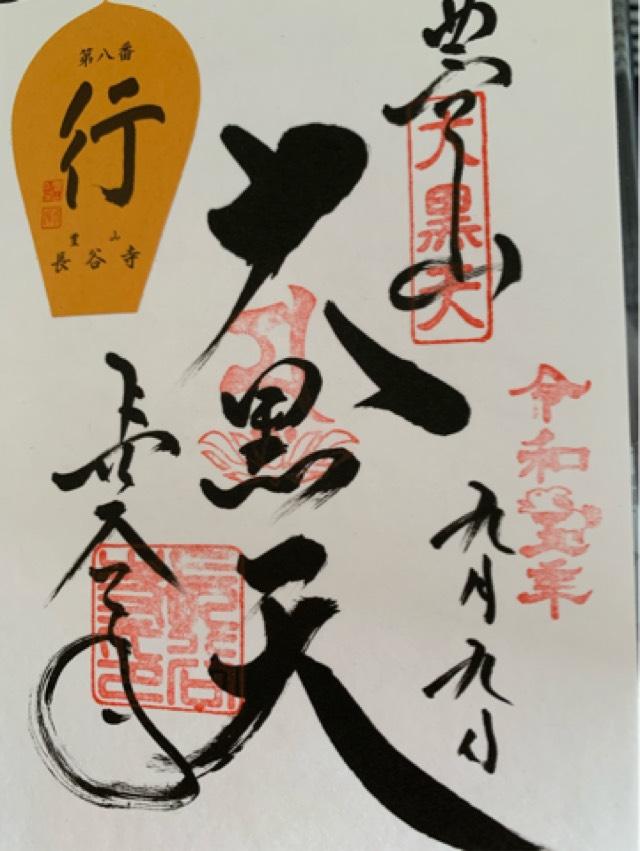 豊山
大黒天
令和五年
九月九日
大黒天
長谷寺
第八番
行
豊山
長谷寺